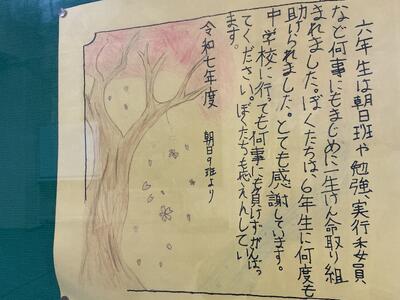 六年生は朝日班や勉強、実行委員
など何事にもまじめに一生けん命取り組
まれました。ぼくたちは、6年生に何度も
助けられました。とても感謝しています。
中学校に行っても何事にも負けずがんばっ
てください。ぼくたちも応えんしてい
ます。
令和七年度
朝日9班より